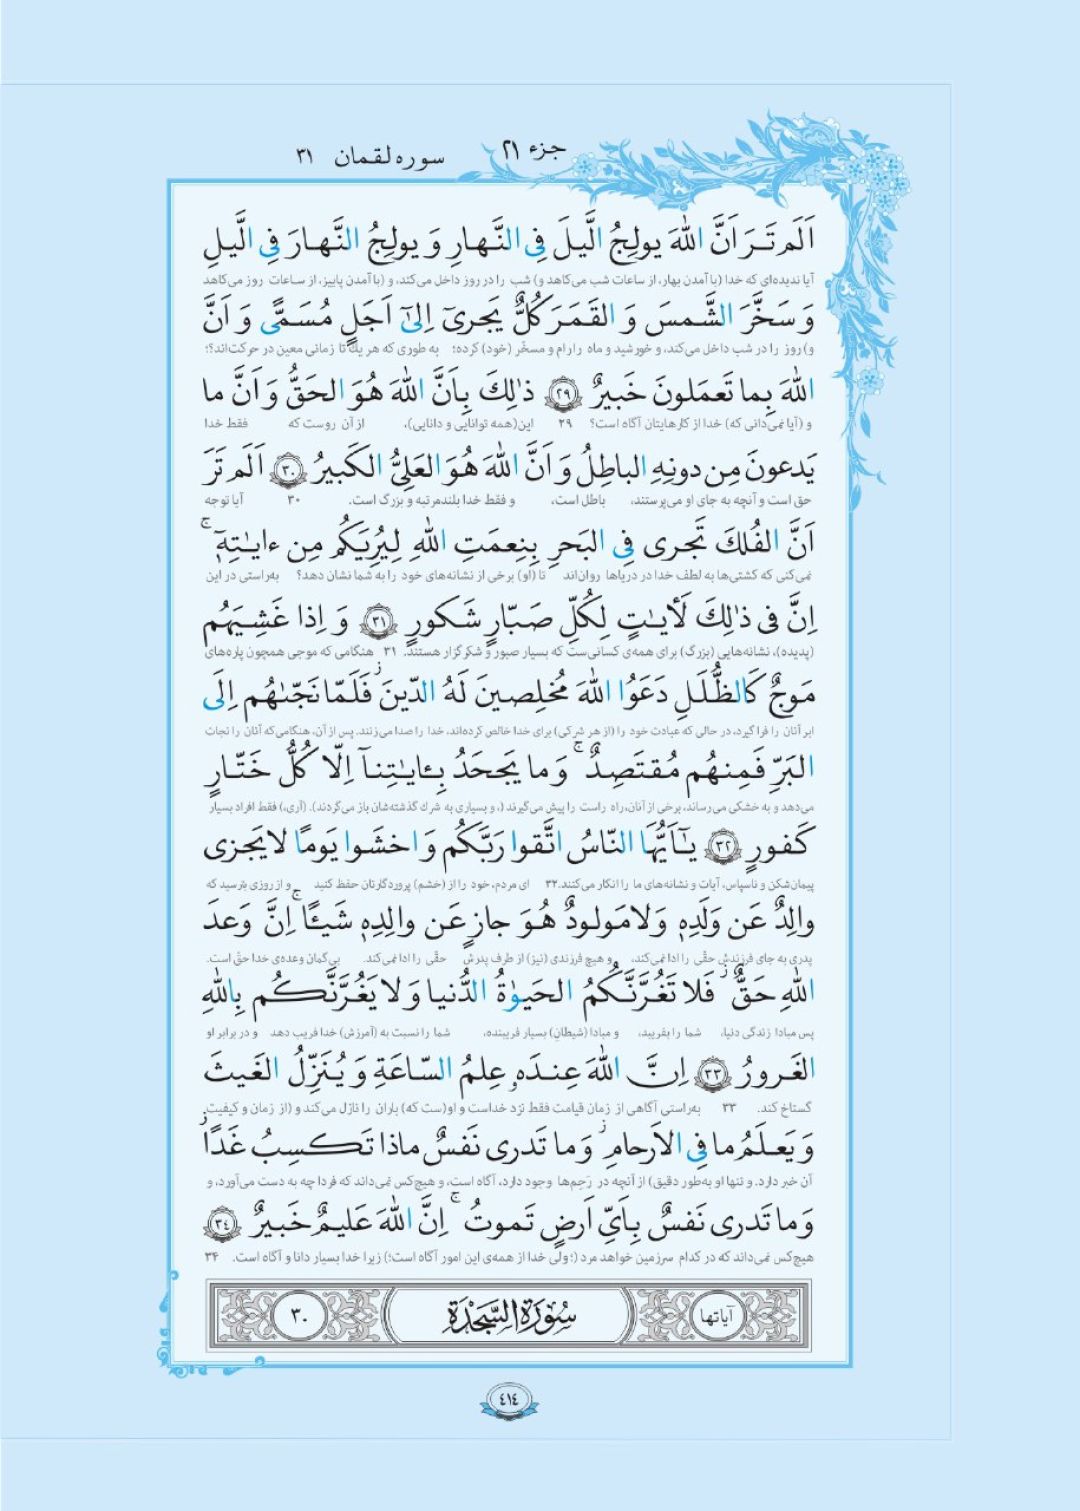 جزء ٢١
سوره لقمان ٣١
اَلَم تَرَ اَنَّ اللّٰهَ يولِجُ الَّيلَ فِى النَّهارِ وَ يولِجُ النَّهارَ فِى الَّيلِ
آیا ندیده‌ای که خدا (با آمدن بهار، از ساعات شب می‌کاهد و) شب را در روز داخل می‌کند، و (با آمدن پاییز، از ساعات روز می‌کاهد
وَ سَخَّرَ الشَّمسَ وَ القَمَرَ كُلٌّ يَجرىٓ اِلىٰٓ اَجَلٍ مُسَمًّى وَ اَنَّ
و) روز را در شب داخل می‌کند، و خورشید و ماه را رام و مسخّر (خود) کرده؛ به طوری که هر یک تا زمانی معین در حرکت‌اند؟؛
اللّٰهَ بِما تَعمَلونَ خَبيرٌ ﴿٢٩﴾ ذٰلِكَ بِاَنَّ اللّٰهَ هُوَ الحَقُّ وَ اَنَّ ما
و (آیا نمی‌دانی که) خدا از کارهایتان آگاه است؟ ۲۹ این(همه توانایی و دانایی)، از آن روست که فقط خدا
يَدعونَ مِن دونِهِ الباطِلُ وَ اَنَّ اللّٰهَ هُوَ العَلِىُّ الكَبيرُ ﴿٣٠﴾ اَلَم تَرَ
حق است و آنچه به جای او می‌پرستند، باطل است، و فقط خدا بلندمرتبه و بزرگ است. ۳۰ آیا توجه
اَنَّ الفُلكَ تَجرى فِى البَحرِ بِنِعمَتِ اللّٰهِ لِيُرِيَكُم مِن ءايٰتِهٖٓ ۚ
نمی‌کنی که کشتی‌ها به لطف خدا در دریاها روان‌اند تا (او) برخی از نشانه‌های خود را به شما نشان دهد؟ به‌راستی در این
اِنَّ فى ذٰلِكَ لَأيٰتٍ لِكُلِّ صَبّارٍ شَكورٍ ﴿٣١﴾ وَ اِذا غَشِيَهُم
(پدیده)، نشانه‌هایی (بزرگ) برای همه‌ی کسانی‌ست که بسیار صبور و شکرگزار هستند. ۳۱ هنگامی که موجی همچون پاره‌های
مَوجٌ كَالظُّلَلِ دَعَوُا اللّٰهَ مُخلِصينَ لَهُ الدّينَ ز فَلَمّا نَجّىٰهُم اِلَى
ابر آنان را فرا گیرد، در حالی که عبادت خود را (از هر شرکی) برای خدا خالص کرده‌اند، خدا را صدا می‌زنند. پس از آن، هنگامی‌که آنان را نجات
البَرِّ فَمِنهُم مُقتَصِدٌ ۚ وَ ما يَجحَدُ بِـٔايٰتِنآ اِلّا كُلُّ خَتّارٍ
می‌دهد و به خشکی می‌رساند، برخی از آنان،راه راست را پیش می‌گیرند (، و بسیاری به شرك گذشته‌شان باز می‌گردند). (آری،) فقط افراد بسیار
كَفورٍ ﴿٣٢﴾ يٰٓاَيُّهَا النّاسُ اتَّقوا رَبَّكُم وَ اخشَوا يَومًا لا يَجزى
پیمان‌شکن و ناسپاس، آیات و نشانه‌های ما را انکار می‌کنند.۳۲ ای مردم، خود را از (خشم) پروردگارتان حفظ کنید و از روزی بترسید که
والِدٌ عَن وَلَدِهٖ وَ لا مَولودٌ هُوَ جازٍ عَن والِدِهٖ شَيـًٔا ۚ اِنَّ وَعدَ
پدری به جای فرزندش حقّی را ادا نمی‌کند، و هیچ فرزندی (نیز) از طرف پدرش حقّی را ادا نمی‌کند. بی‌گمان وعده‌ی خدا حقّ است.
اللّٰهِ حَقٌّ ز فَلا تَغُرَّنَّكُمُ الحَيوٰةُ الدُّنيا وَ لا يَغُرَّنَّكُم بِاللّٰهِ
پس مبادا زندگی دنیا، شما را بفریبد، و مبادا (شیطان) بسیار فریبنده، شما را نسبت به (آمرزش) خدا فریب دهد و در برابر او
الغَرورُ ﴿٣٣﴾ اِنَّ اللّٰهَ عِندَهٗ عِلمُ السّاعَةِ وَ يُنَزِّلُ الغَيثَ
گستاخ کند. ۳۳ به‌راستی آگاهی از زمان قیامت فقط نزد خداست و او(ست که) باران را نازل می‌کند و (از زمان و کیفیت
وَ يَعلَمُ ما فِى الاَرحامِ ز وَ ما تَدرى نَفسٌ ماذا تَكسِبُ غَدًا ز
آن خبر دارد، و تنها او به‌طور دقیق) از آنچه در رَحِم‌ها وجود دارد، آگاه است، و هیچ‌کس نمی‌داند که فردا چه به دست می‌آورد، و
وَ ما تَدرى نَفسٌ بِاَىِّ اَرضٍ تَموتُ ۚ اِنَّ اللّٰهَ عَليمٌ خَبيرٌ ﴿٣٤﴾
هیچ‌کس نمی‌داند که در کدام سرزمین خواهد مرد (؛ ولی خدا از همه‌ی این امور آگاه است؛) زیرا خدا بسیار دانا و آگاه است. ۳۴
آیاتها سُورَةُ السَّجْدَةِ ٣٠
٤١٤